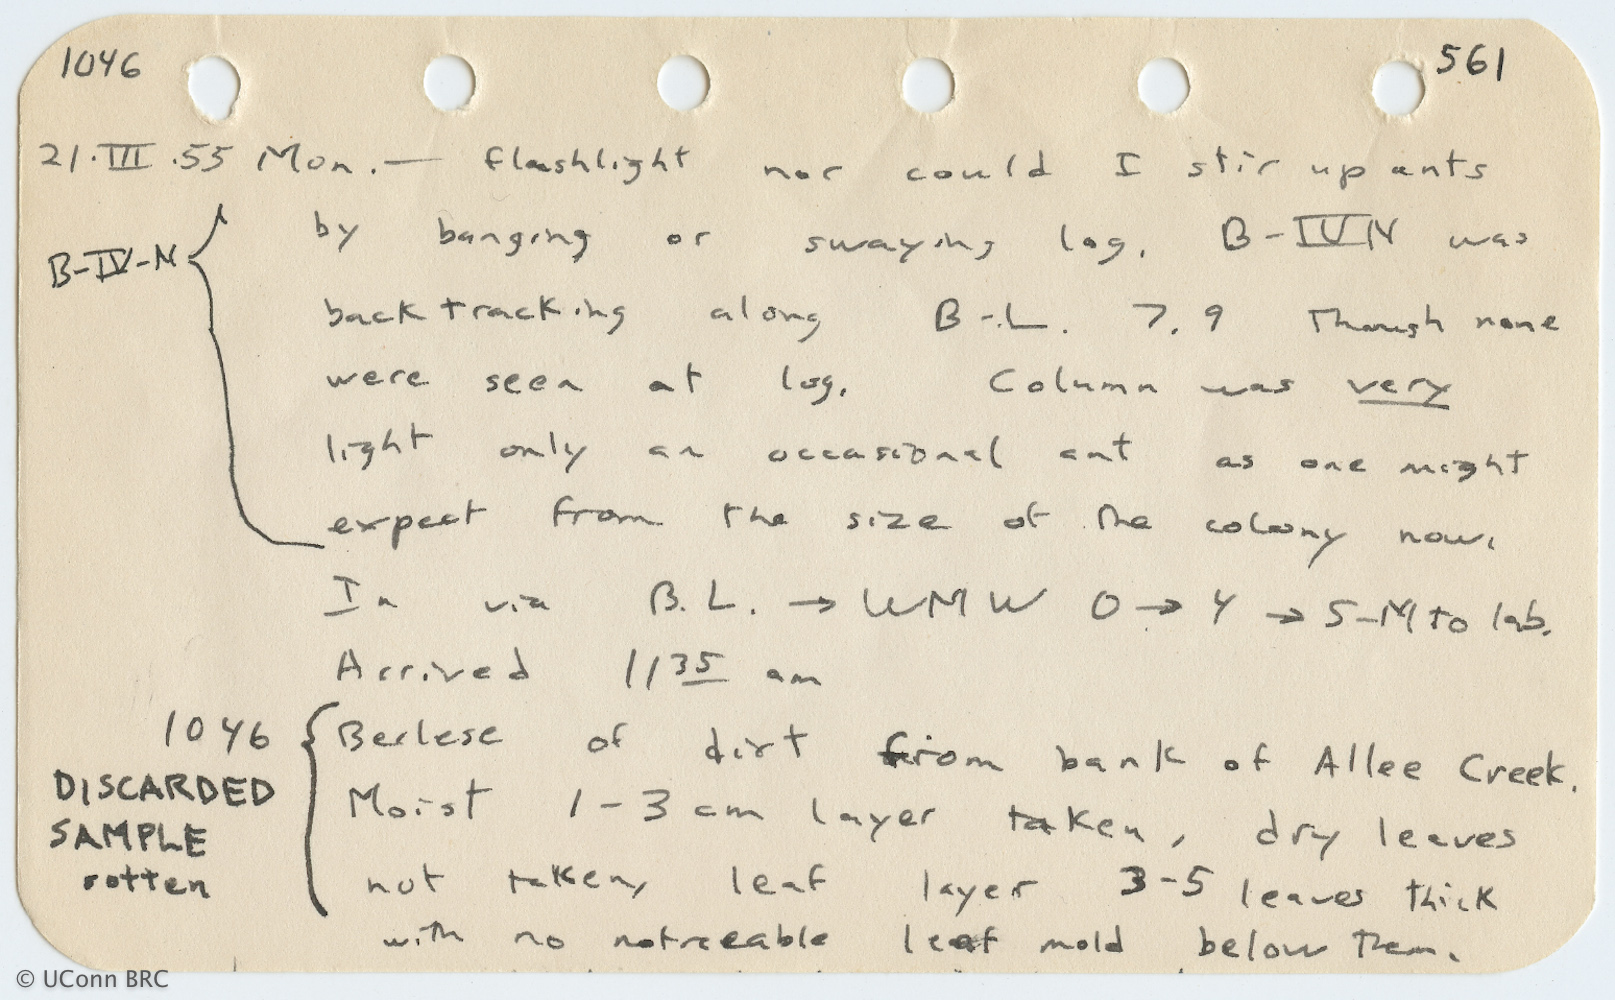 1046 561
21.III.55 Mon. — flashlight nor could I stir up ants
by banging or swaying log. B-IVN was
B-IV-N
backtracking along B-L. 7.9 Though none
were seen at log. Column was very
light only an occasional ant as one might
expect from the size of the colony now.
In via B.L. → WMW 0 → 4 → S-N to lab.
Arrived 1135 am
1046 Berlese of dirt from bank of Allee Creek.
DISCARDED Moist 1-3 cm layer taken, dry leaves
SAMPLE
rotten not taken, leaf layer 3-5 leaves thick
with no noticeable leaf mold below them.
© UConn BRC